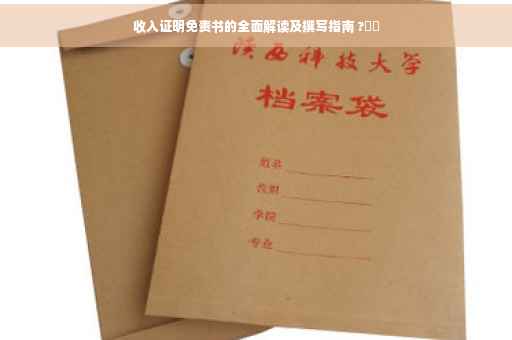 收入证明免责书的全面解读及撰写指南 ?
陕西科技大学
档案袋
姓名
学院
专业